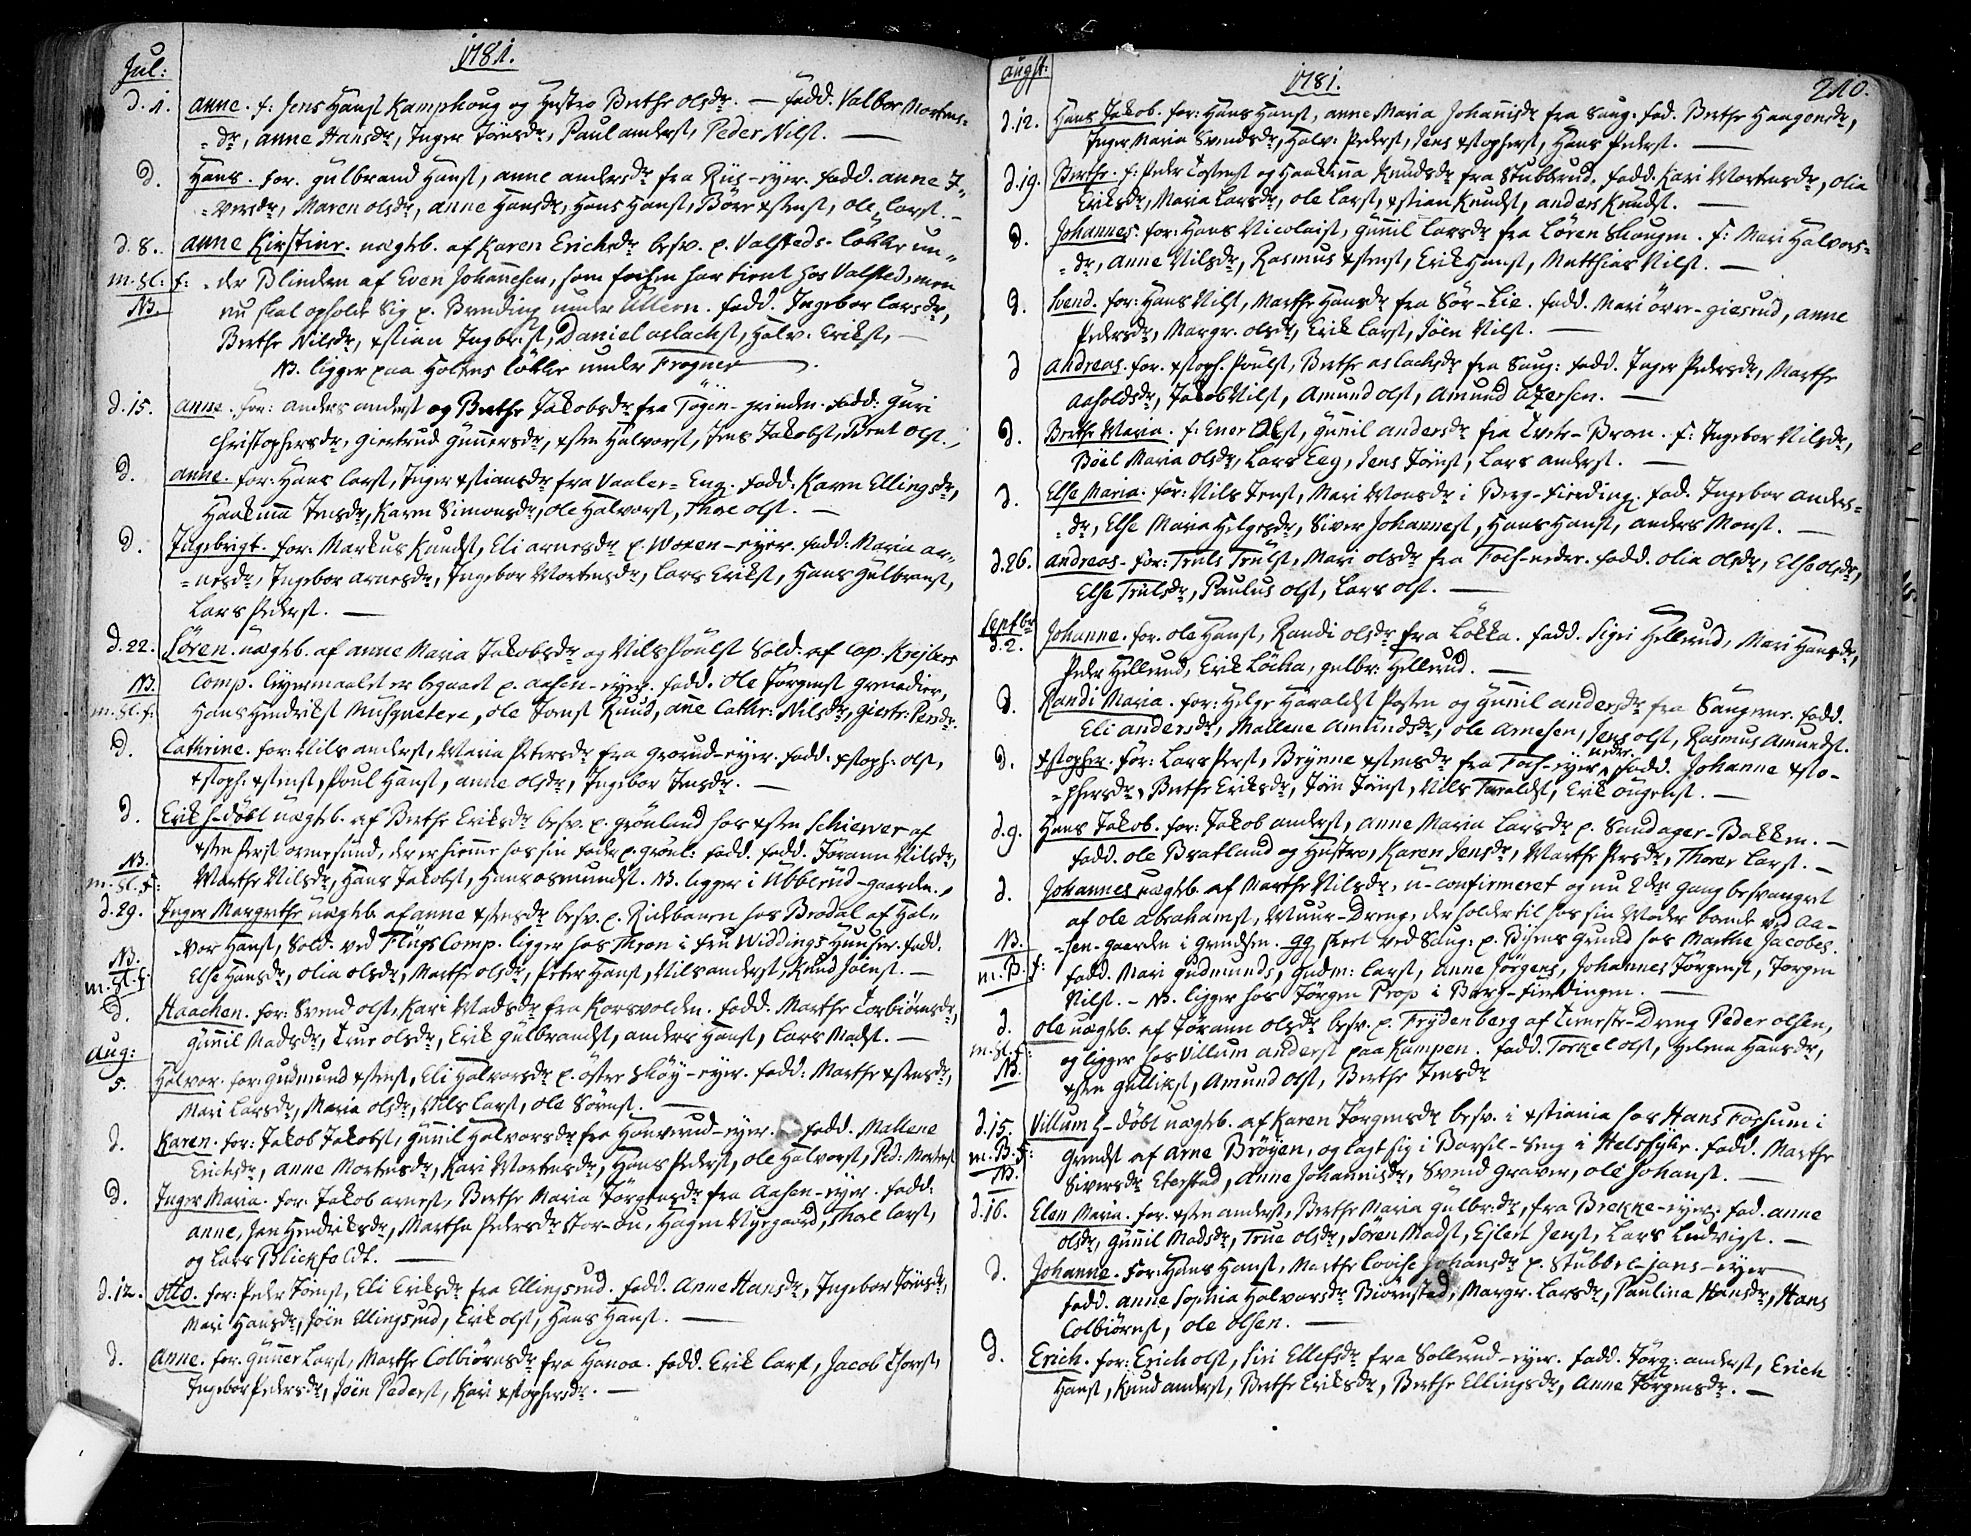 Jul: 1781.
d. 1. Anne. f: Jens Hansst Kamphoug og Hustro Berthe olsdr. — fadd. Valbor Mortens=
=dr, Anne Hansdr, Inger Jönsdr, Paul anderst, Peder Nilst. —
d. Hans. for. Gulbrand Hanst, anne andersdr fra Riis-eyer. fadd. anne I=
=versdr, Maren olsdr, anne Hansdr, Hans Hanst, Börre xstenst, ole Larst. —
d. 8. Anne Kirstine. uægteb. af Karen Erichsdr besv. p. Valsteds-lökke un=
m. sl: f: =der Blindern af Even Johannesen, som forhen har tient hos Valsted, men
NB. nu skal opholde sig p. under Ullern. fadd. Ingebor Larsdr,
Berthe Nilsdr, xstian Ingbr:st, Daniel aslachst, Halv. Erikst, —
NB. ligger paa Holtes lökke under Frogner
d. 15. Anne. for: anders anderst og Berthe Jakobsdr fra Töyen-grinden. fadd: Guri
Christophersdr, Giertrud Gunnersdr, xsten Halvorst, Jens Jakobst, Bent olst.
d. Anne. for: Hans Larst, Inger xstiansdr fra Vaaler-Eng. fadd: Karen Ellingsdr,
Haakina Jensdr, Karen Simonsdr, ole Halvorst, Thore olst. —
d. Ingebrigt. for: Markus Knudst, Eli arnesdr p. Woxen-eyer. fadd: Maria ar=
=nesdr, Ingebor arnesdr, Ingebor Mortensdr, Lars Erikst, Hans Gulbranst,
Lars Pederst. —
d. 22. Sören. uægteb. af anne Maria Jakobsdr og Nils Poulst Sold: af Cap. Krejbers
NB. Comp. leyermaalet er begaaet p. aasen-eyer. fadd. Ole Jörgenst grenadier,
m. sl. f: Hans Hendrikst Musquetere, ole Jonst Ruud, ane Cathr: Nilsdr, giertr: Persdr.
d. Cathrine. for: Nils anderst, Maria Petersdr fra grorud-eyer. fadd. xstoph: olst,
xstoph: xstenst, Poul Hanst, anne olsdr, Ingebor Jensdr. —
d. Erik h-döbt uægteb. af Berthe Eriksdr besv. p. grönland hos xsten Schiewer af
xsten Perst ormesund, der er hiemme hos sin fader p. grönl: fadd. Jörann Nilsdr,
NB.
m. sl. f: Marthe Nilsdr, Hans Jakobst, Hans osmundst. NB. ligger i Ubberud-gaarden.
d. 29. Inger Margrethe uægteb. af anne xstensdr besv. p. Rodebanen hos Brodal af Hal=
=vor Hanst, Sold. ved Flügs Comp. ligger hos Theon i fru Widdings Huuser. fadd.
NB.
m. sl. f: Else Hansdr, olia olsdr, Marthe olsdr, Peter Hanst, Nils anderst, Knud Jöenst. —
d. Haachen. for: Svend olst, Kari Madsdr fra Korsvolden. fadd. Marthe Torbiörnsdr,
Gunnil Madsdr, True olsdr, Erik Gulbrandst, anders Hanst, Lars Madst. —
Aug:
5. Halvor. for: Gudmund xstenst, Eli Halvorsdr p. östre Sköy-eyer. fadd: Marthe xstensdr,
Mari Larsdr, Maria olsdr, Nils Larst, ole Sörnst. —
d. Karen. for: Jakob Jakobst, Gunnil Halvorsdr fra Houverud-eyer. fadd. Mallene
Erichsdr, anne Mortensdr, Kari Mortensdr, Hans Pederst, ole Halvorst, Ped: Mortenst
d. Inger Maria. for: Jakob arnest, Berthe Maria Jörgensdr fra Aasen-eyer. fadd:
anne, Jan Hendriksdr, Marthe Pedersdr Stor-öu, Hagen Nyegaard, Thore Larst,
og Lars Blichfeldt. —
d. 12. Otto. for: Peder Jönst, Eli Eriksdr fra Ellingsrud. fadd. Anne Hansdr, Ingebor Jönsdr,
Mari Hansdr, Jöen Ellingsrud, Erik olst, Hans Hanst. —
d. Anne. for. Gunner Larst, Marthe Colbiörnsdr fra Hanoa. fadd. Erik Larst, Jacob Thorst,
Ingebor Pedersdr, Jöen Pederst, Kari xstophersdr. —
augst: 1781. 210.
d. 12. Hans Jakob. for: Hans Hanst, anne Maria Johannisdr fra Saug. fad. Berthe Haagensdr,
Inger Maria Svendsdr, Halv. Pederst, Jens xstopherst, Hans Pederst. —
d. 19. Berthe. f. Peder Tostenst og Haakinna Knudsdr fra Stubberud. fadd. Kari Mortensdr, olia
Eriksdr, Maria Larsdr, ole Larst, xstian Knudst, anders Knudst. —
d. Johannes. for: Hans Nicolaist, Gunnil Larsdr fra Lören Skougen. f: Mari Halvors=
=dr, Anne Nilsdr, Rasmus xstenst, Erik Hanst, Matthias Nilst. —
d. Svend. for: Hans Nilst, Marthe Hansdr fra Sör-Lie. fadd. Mari övre-giesrud, anne
Pedersdr, Margr. olsdr, Erik Larst, Jöen Nilst. —
d Andreas. for. xstoph. Poulst, Berthe aslachsdr fra Saug: fadd. Inger Pedersdr, Marthe
Aaseldsdr, Jakob Nilst, Amund olst, Amund Assersen. —
d. Berthe Maria. f: Ener Olst, Gunil andersdr fra Tvete-Braten. f: Ingebor Nilsdr,
Böel Maria olsdr, Lars Eeg, Jens Jönst, Lars anderst. —
d. Else Maria. for: Nils Jenst, Mari Monsdr i Berg-Fierding. fad. Ingebor anders=
=dr, Else Maria Helgesdr, Siver Johannest, Hans Hanst, anders Monst. —
d. 26. Andreas. for: Truls Trulst, Mari olsdr fra Fos-nedre. fadd. olia olsdr, Else olsdr,
Else Trulsdr, Paulus olst, Lars olst. —
Septbr
d. 2. Johanne. for. ole Hanst, Randi olsdr fra Lökka. fadd. Sigri Hellerud, Mari Hansdr,
Peder Hellerud, Erik Löcka, gulbr: Hellerud. —
d. Randi Maria. for: Helge Haraldst Posten og Gunil andersdr fra Saugerne. fadd.
Eli andersdr, Mallene Amundsdr, ole Arnesen, Jens olst, Rasmus Amundst.
d. xstopher. for: Lars Perst, Brynne xstensdr fra Fos-eyer nedre. fadd. Johanne xsto=
=phersdr, Berthe Eriksdr, Jön Jönst, Nils Taraldst, Erik ougenst. —
d. 9. Hans Jakob. for: Jakob anderst, anne Maria Larsdr p. Sandager-Bakken. —
fadd. ole Bratland og Hustro, Karen Jensdr, Marthe Persdr, Thorer Larst. —
d. Johannes uægteb. af Marthe Nilsdr, u-confirmeret og nu 2den gang besvangret
af ole Abrahamst, Muur-Dreng, der holder til hos sin Moder boende ved Aa=
NB. =sen-gaarden i Grendsen. gg skeet ved Saug: p. Bysens Grund hos Marthe Jacobs.
m. B. f: fadd. Mari Gudmunds, Gudm: Larst, Anne Jörgens, Johannes Jörgenst, Jorgen
Nilst. — NB. ligger hos Jörgen Prop i Berg-fierdingen. —
d. Ole uægteb. af Jörann olsdr besv. p. Frydenberg af Tienneste-Dreng Peder olsen,
m. sl. f: og ligger hos Villum anderst paa Kampen. fadd. Torkel olst, Helena Hansdr,
NB. xsten Gullikst, Amund olst, Berthe Jensdr
d. 15. Villum h-döbt uægteb. af Karen Jörgensdr besv. i xstiania hos Hans Forsum i
m. B. f: Grendst af Arne Bröyen, og lagt sig i Barsel-Seng i Helsfyhr. fadd. Marthe
NB. Siversdr Eterstad, Anne Johannisdr, Svend Graver, ole Johanst. —
d. 16. Elen Maria. for. xsten anderst, Berthe Maria Gulbr:dr, fra Brekke-eyer. fad. anne
olsdr, Gunnil Madsdr, True olsdr, Sören Madst, Ejlert Jenst, Lars Ludvigt. —
d. Johanne. for: Hans Hanst, Marthe Lovise Johansdr p. Stubbeljans-eyer
fadd. anne Sophia Halvorsdr Biörnsted, Margr. Larsdr, Paulina Hansdr, Hans
Colbiörnst, ole olsen. —
d. Erich. for: Erich olst, Siri Ellefsdr fra Sollerud-eyer. fadd. Jörg: anderst, Erich
Hanst, Knud anderst, Berthe Eriksdr, Berthe Ellingsdr, Anne Jörgensdr. —